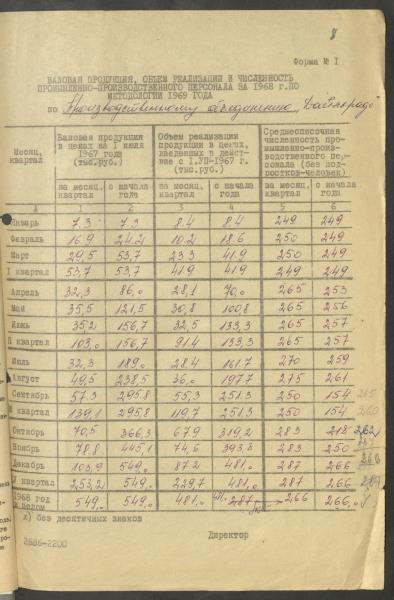 8
Форма № 1
ВАЛОВАЯ ПРОДУКЦИЯ, ОБЪЕМ РЕАЛИЗАЦИИ И ЧИСЛЕННОСТЬ
ПРОМЫШЛЕННО-ПРОИЗВОДСТВЕННОГО ПЕРСОНАЛА ЗА 1968 г. ПО
МЕТОДОЛОГИИ 1969 ГОДА
по Производственному объединению
Месяц, квартал | Валовая продукция в ценах на 1 июля 1967 года (тыс.руб.) | Объем реализации продукции в ценах, введенных в действие с 1.УП-1967 г. (тыс.руб.) | Среднесписочная численность промышленно-производственного персонала (без подростков-человек)
за месяц, квартал | с начала года | за месяц, квартал | с начала года | за месяц, квартал | с начала года
А 1 2 3 4 5 6
Январь 7.3 7.3 8.4 8.4 249 249
Февраль 16.9 24.2 10.2 18.6 250 249
Март 29,5 53,7 23.3 41.9 250 249
I квартал 53,7 53,7 41.9 41.9 249 249
Апрель 32,3 86,0 28,1 70,0 265 253
Май 35,5 121,5 30,8 100,8 265 256
Июнь 35,2 156,7 32,5 133,3 265 257
П квартал 103,0 156,7 91.4 133.3 265 257
Июль 32,3 189,0 28.4 161.7 270 259
Август 49,5 238,5 36,0 197.7 275 261
Сентябрь 57.3 295.8 55,3 251.3 250 154
квартал 139,1 295,8 119,7 251.3 250 154
Октябрь 70,5 366,3 67.9 319,2 283 218 262
Ноябрь 78.8 445,1 74,6 393,8 283 250
Декабрь 103,9 549,0 87.2 481,0 287 266
квартал 253,2 549,0 229,7 481,0 287 266
1968 год в целом 549,0 549,0 481,0 481, 287 266 266,0
х) без десятичных знаков
2686-2200
Директор